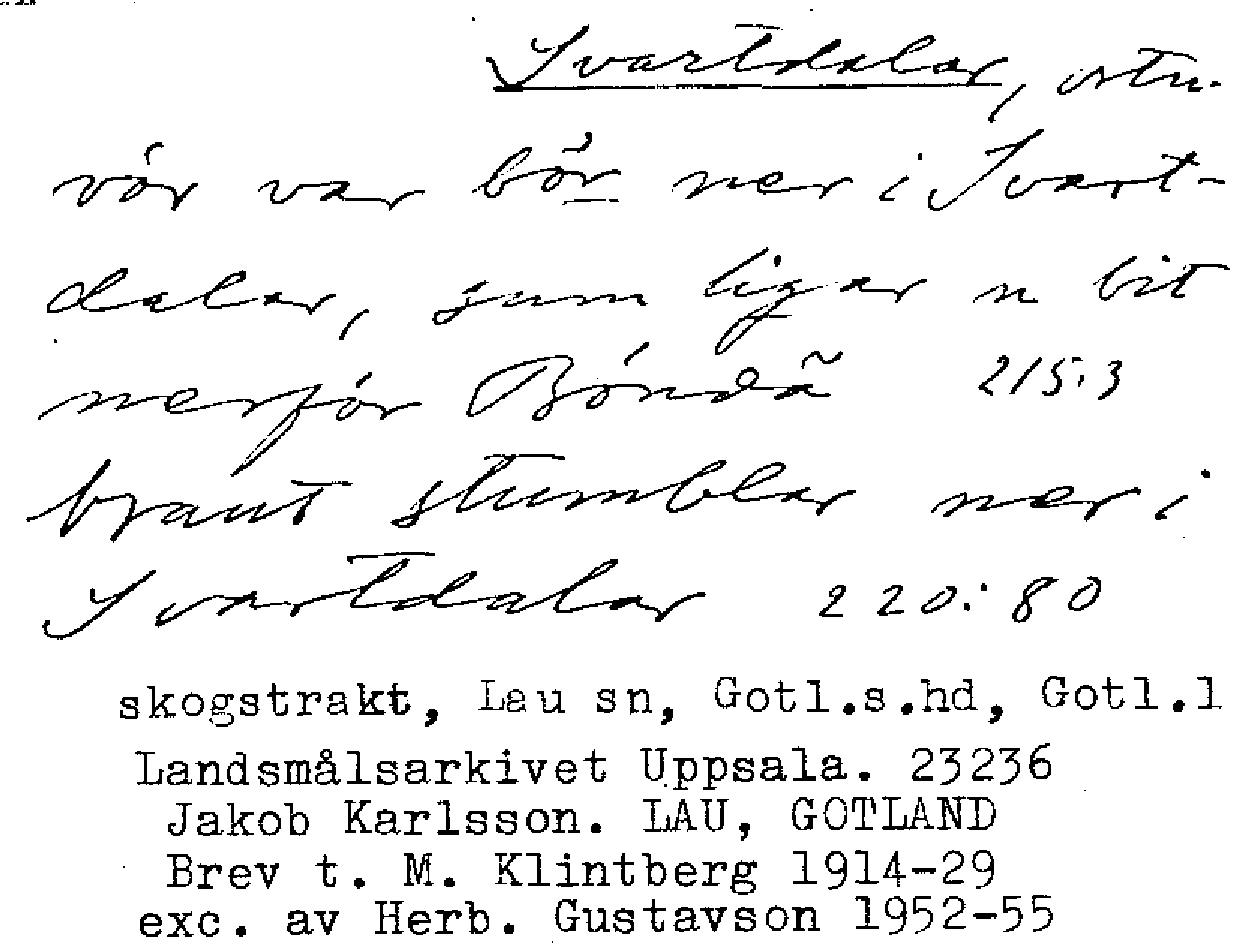 Svartdalar, ortn.
vór var bör ner i Svart-
dalar, sum ligar n bit
nerfór Bóndã 215:3
braut stumblar ner i
Svartdalar 220:80
skogstrakt, Lau sn, Gotl.s.hd, Gotl.l
Landsmålsarkivet Uppsala. 23236
Jakob Karlsson. LAU, GOTLAND
Brev t. M. Klintberg 1914-29
exc. av Herb. Gustavson 1952-55